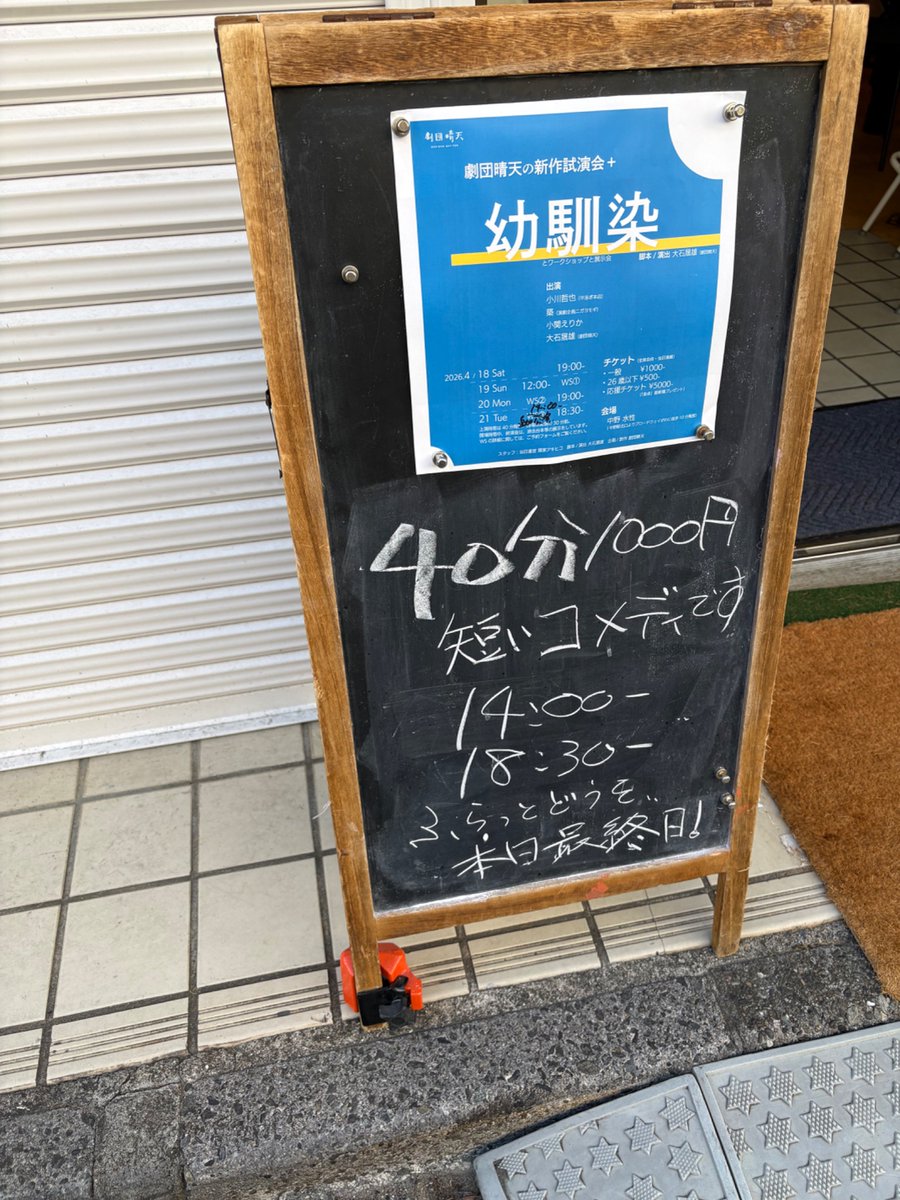 劇団晴天
劇団晴天の新作試演会+
幼馴染
とワークショップと展示会
脚本 / 演出 大石晟雄 (劇団晴天)
出演
小川哲也
築
小関えりか
大石晟雄 (劇団晴天)
2026.4 / 18 Sat 19:00-
19 Sun 12:00- WS①
20 Mon WS② 19:00-
21 Tue 14:00 18:30-
チケット
・一般 ¥1000-
・26歳以下 ¥500-
・応援チケット ¥5000-
会場
中野 水性
40分 1000円
短いコメディです
14:00-
18:30-
ふらっとどうぞ
本日最終日!